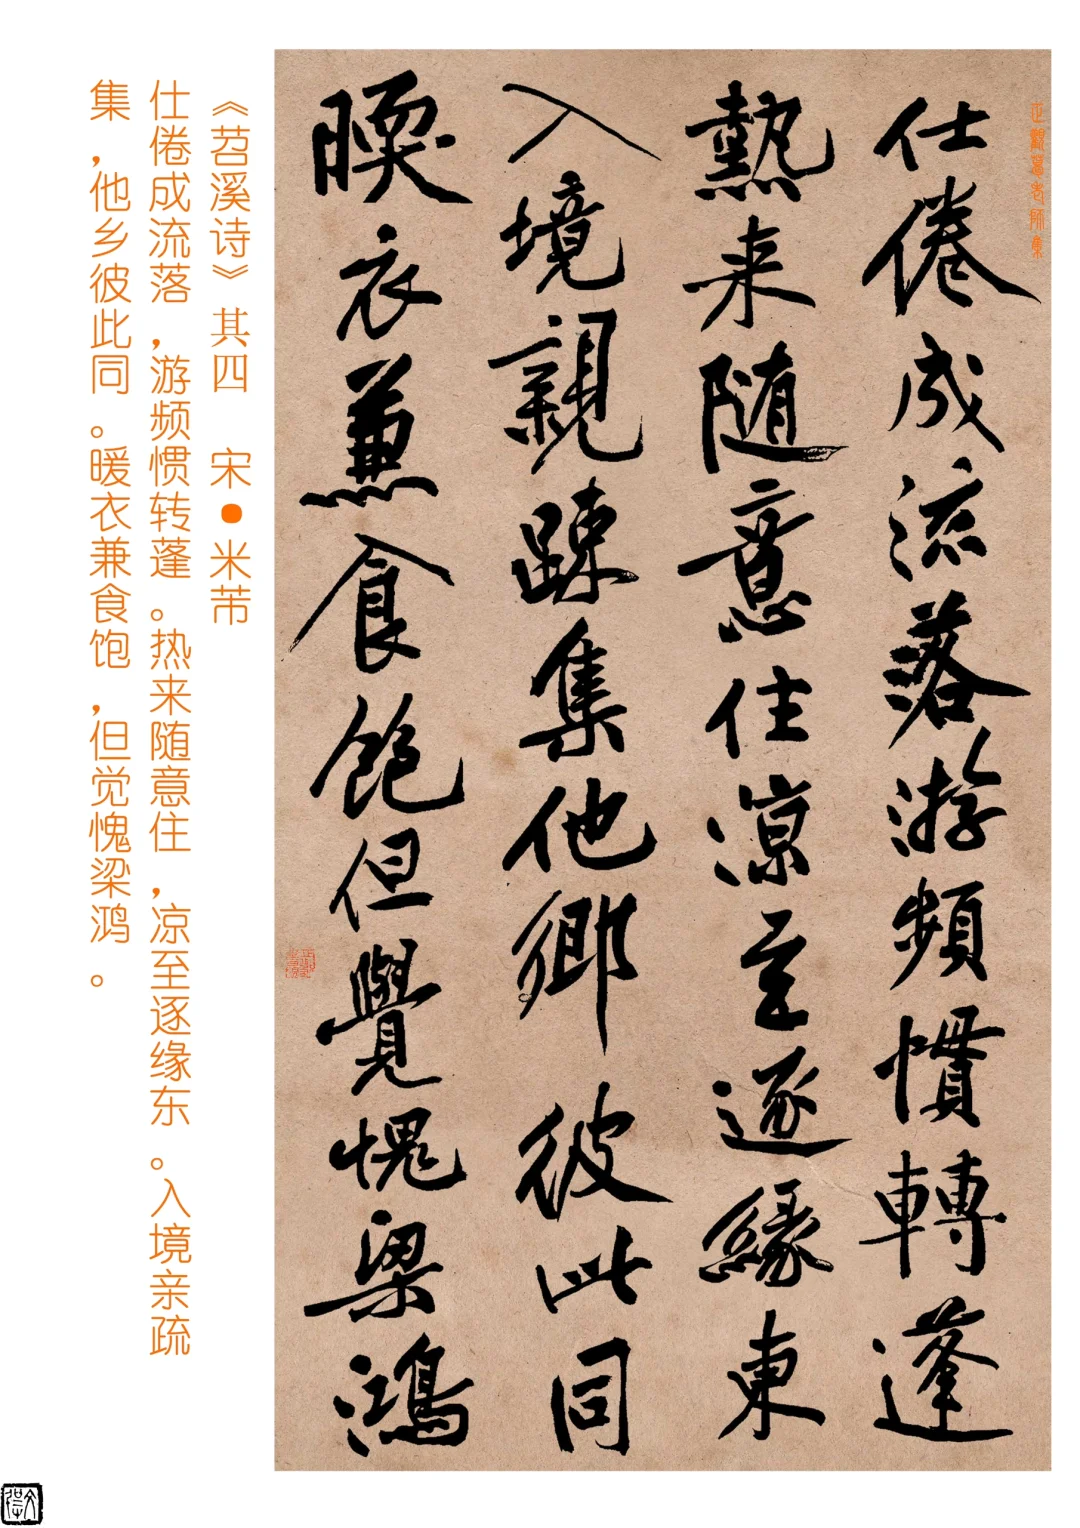 仕倦成流落游頻慣轉蓬
熱来随意住凉至逐緣東
入境親疎集他鄉彼此同
暖衣兼食飽但覺愧梁鴻
《苕溪诗》其四　宋●米芾
仕倦成流落，游频惯转蓬。热来随意住，凉至逐缘东。入境亲疏
集，他乡彼此同。暖衣兼食饱，但觉愧梁鸿。